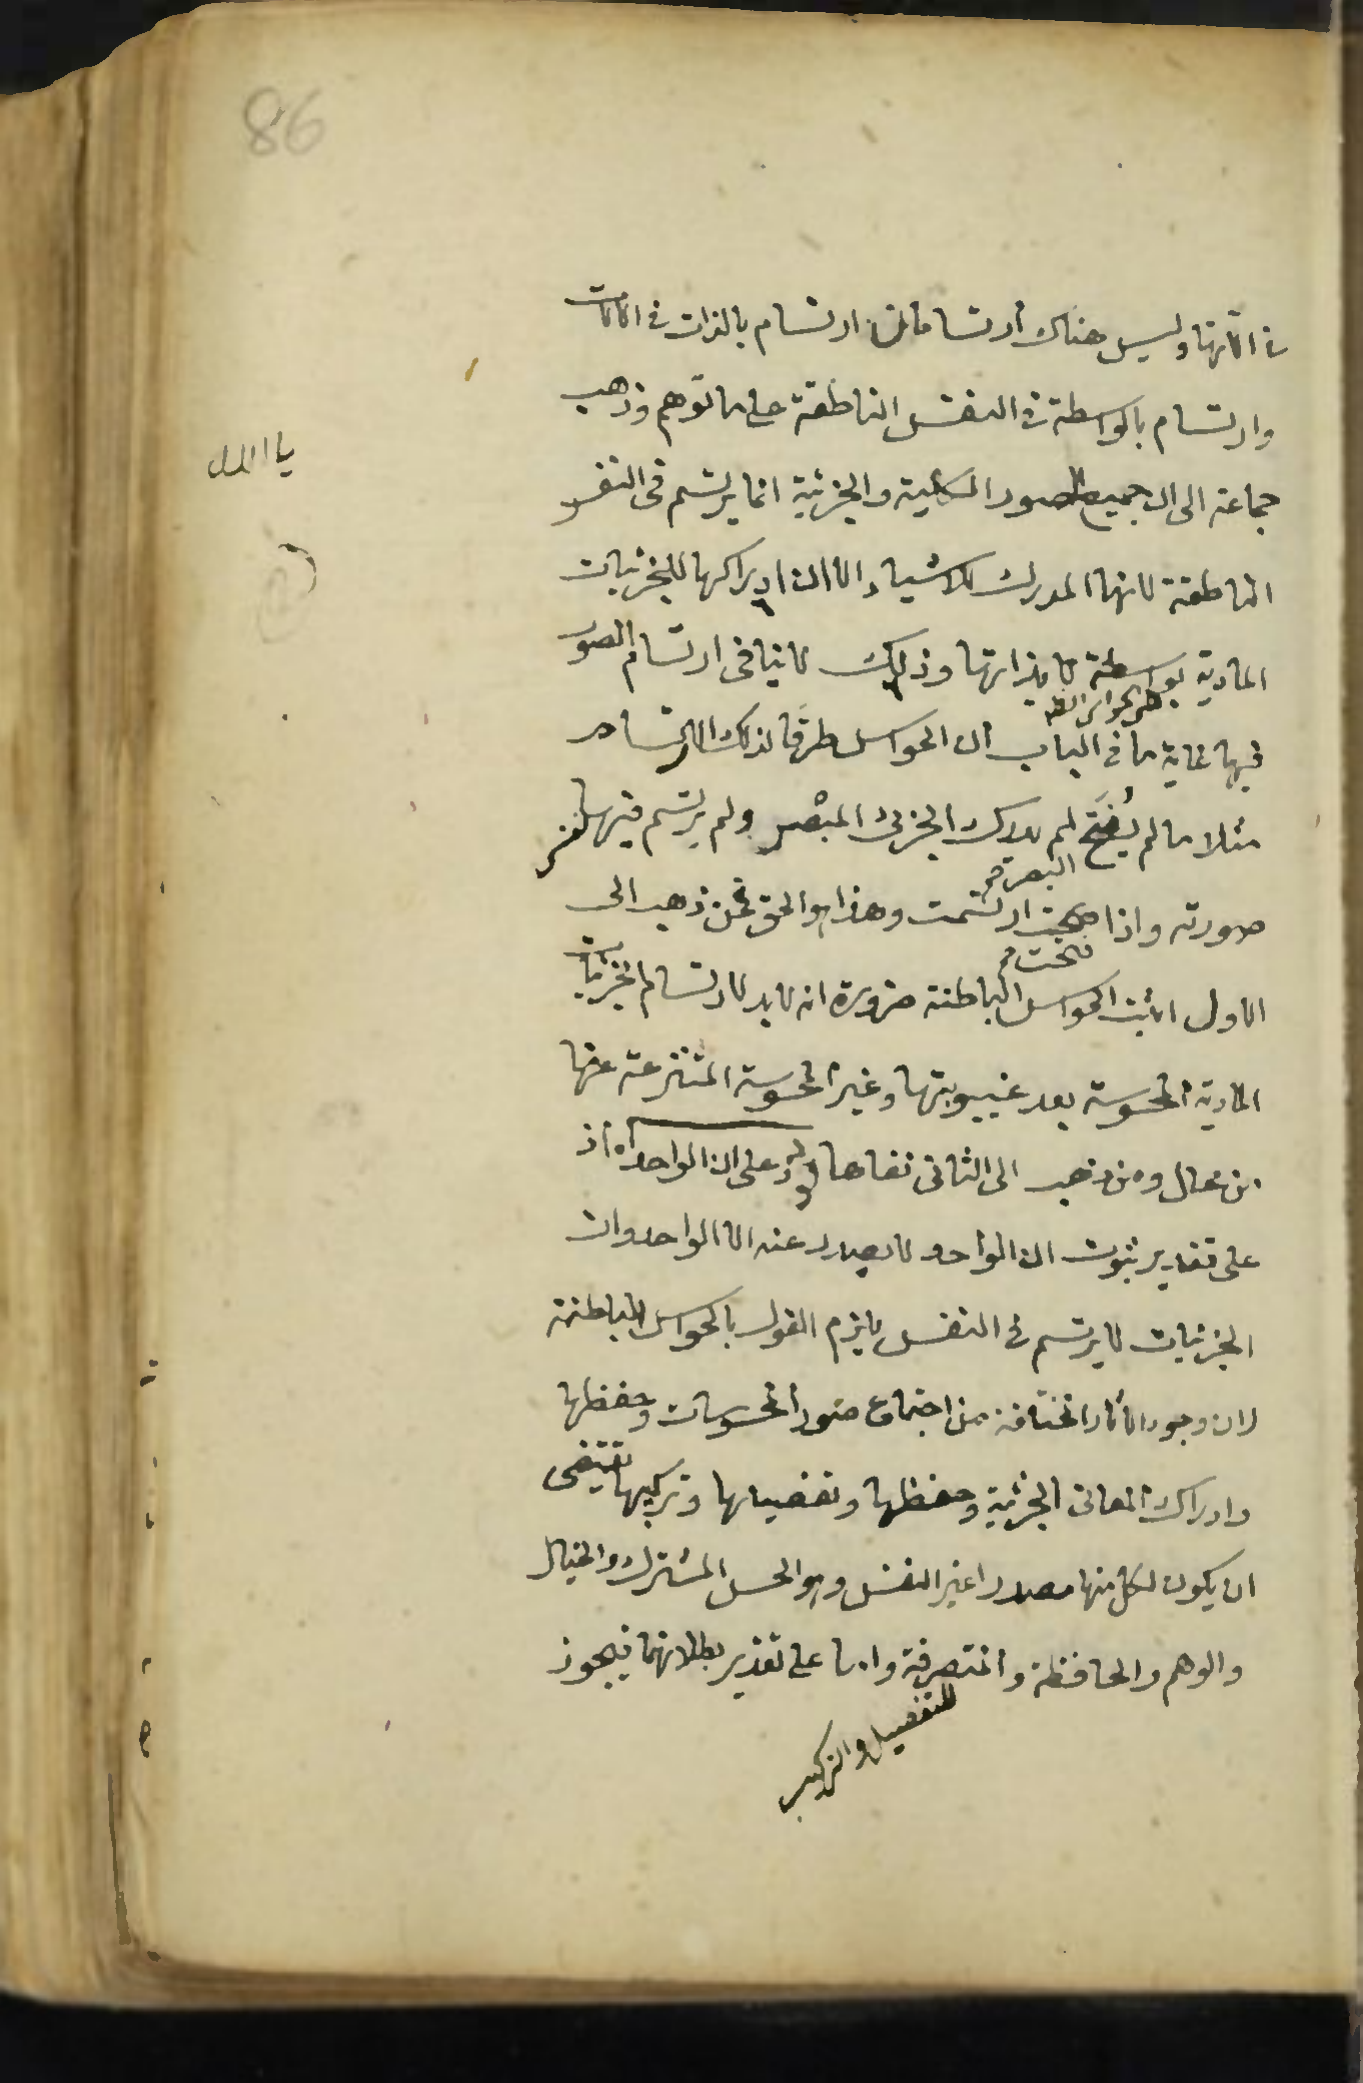 86
في آلاتها وليس هناك ارتسامان ارتسام بالذات في الآلات
وارتسام بالواسطة في النفس الناطقة على ما توهم وذهب
جماعة الى ان جميع الصور الكلية والجزئية انما يرتسم في النفس
الناطقة لانها المدرك للاشياء الا ان ادراكها للجزئيات
المادية بواسطة لا بذاتها وذلك لا ينافي ارتسام الصور
فيها غاية ما في الباب ان الحواس طرق لذلك الارتسام
مثلا ما لم يفتح لم يدرك الجزئي المبصر ولم يرتسم فيها
البصر
صورته واذا فتحت ارتسمت وهذا هو الحق فمن ذهب الى
فتحت
الاول اثبت الحواس الباطنة ضرورة انه لا بد لارتسام الجزئيات
المادية المحسوسة بعد غيبوبتها وغير المحسوسة المنتزعة عنها
من محال ومن ذهب الى الثاني نفاها على ان الواحد اه اذ
على تقدير ثبوت ان الواحد لا يصدر عنه الا الواحد وان
الجزئيات لا يرتسم في النفس يلزم القول بالحواس الباطنة
لان وجود الآثار المختلفة من اجتماع صور المحسوسات وحفظها
وادراك المعاني الجزئية وحفظها وتفصيلها وتركيبها تقتضى
ان يكون لكل منها مصدرا غير النفس وهو الحس المشترك والخيال
والوهم والحافظة والمتصرفة واما على تقدير بطلانهما فيجوز
للتفصيل والتركيب